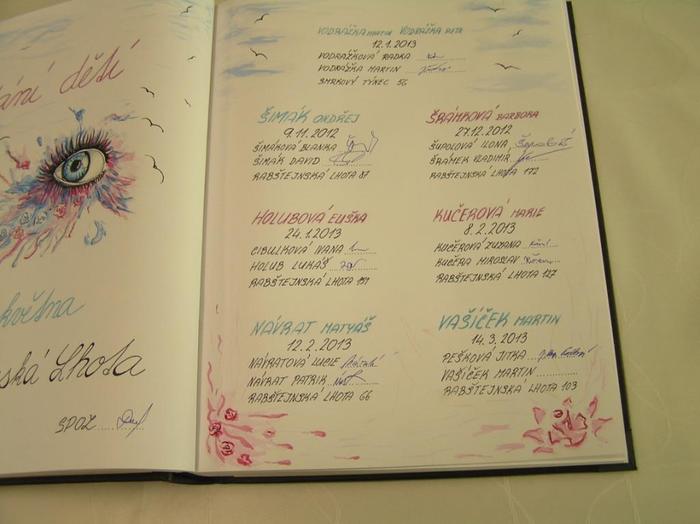 ání dětí
května
ská Lhota
SPOZ
VODRÁŽKA MARTIN VODRÁŽKA PETR
12.1.2013
VODRÁŽKOVÁ RADKA
VODRÁŽKA MARTIN
SMRKOVÝ TÝNEC 56
ŠIMÁK ONDŘEJ
9.11.2012
ŠIMÁKOVÁ BLANKA
ŠIMÁK DAVID
RABŠTEJNSKÁ LHOTA 87
ŠRÁMKOVÁ BARBORA
27.12.2012
ŠUPOLOVÁ ILONA
ŠRÁMEK VLADIMÍR
RABŠTEJNSKÁ LHOTA 172
HOLUBOVÁ ELIŠKA
24.1.2013
CIBULKOVÁ IVANA
HOLUB LUKÁŠ
RABŠTEJNSKÁ LHOTA 191
KUČEROVÁ MARIE
8.2.2013
KUČEROVÁ ZUZANA
KUČERA MIROSLAV
RABŠTEJNSKÁ LHOTA 127
NÁVRAT MATYÁŠ
12.2.2013
NÁVRATOVÁ LUCIE
NÁVRAT PATRIK
RABŠTEJNSKÁ LHOTA 66
VAŠÍČEK MARTIN
14.3.2013
PEŠKOVÁ JITKA
VAŠÍČEK MARTIN
RABŠTEJNSKÁ LHOTA 103